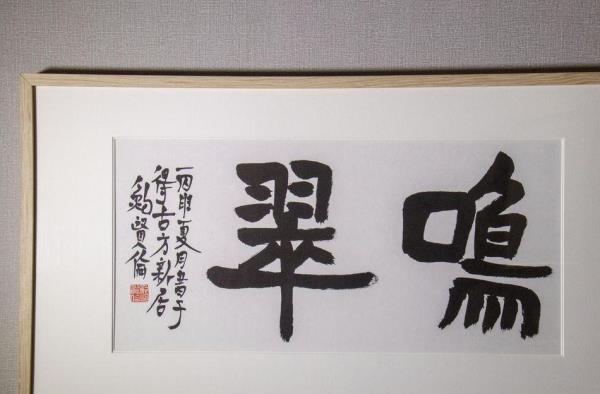 鳴翠
丙申夏月書于
得古方新居
鮑賢倫